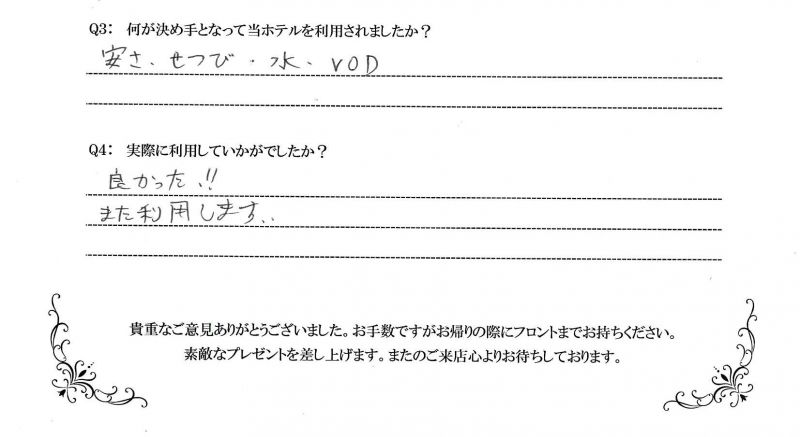 Q3: 何が決め手となって当ホテルを利用されましたか？
安さ、せつび・水、VOD
Q4: 実際に利用していかがでしたか？
良かった!!
また利用します..
貴重なご意見ありがとうございました。お手数ですがお帰りの際にフロントまでお持ちください。
素敵なプレゼントを差し上げます。またのご来店心よりお待ちしております。